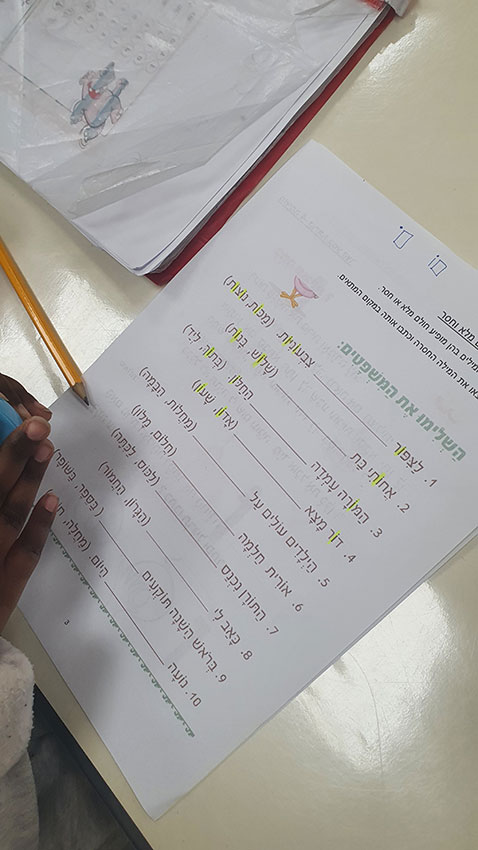 מלא וחסר
מילים בהן מופיע חולם מלא או חסר.
את המילה החסרה וכתבו אותה במקום המתאים.
השלימו את המשפטים:
1. לַצִּפּוֹר ________ צִבְעוֹנִיּוֹת. (מַכּוֹת, נוֹצוֹת)
2. אֲחוֹתִי בַּת ________ (שָׁלוֹשׁ, בָּנוֹת)
3. הַמּוֹרָה עָמְדָה ________ הַחַלּוֹן. (בְּתוֹר, לְיַד)
4. דּוֹר מָצָא ________ (אָרוֹן, שָׁעוֹן)
5. הַיְּלָדִים עוֹלִים עַל ________ (מַחֲלוֹת, הַבָּמָה)
6. אוֹרִית חָלְמָה ________ (חֲלוֹם, מָלוֹן)
7. הַתּוֹרָן נִכְנַס ________ (לַכּוֹס, לַכִּתָּה)
8. כָּאַב לִי ________ (הַגָּרוֹן, הַחֲמוֹר)
9. בְּרֹאשׁ הַשָּׁנָה תּוֹקְעִים ________ (בַּסֵּפֶר, בַּשּׁוֹפָר)
10. נוֹעָה ________ הַיּוֹם (מַחֲלָה,
3